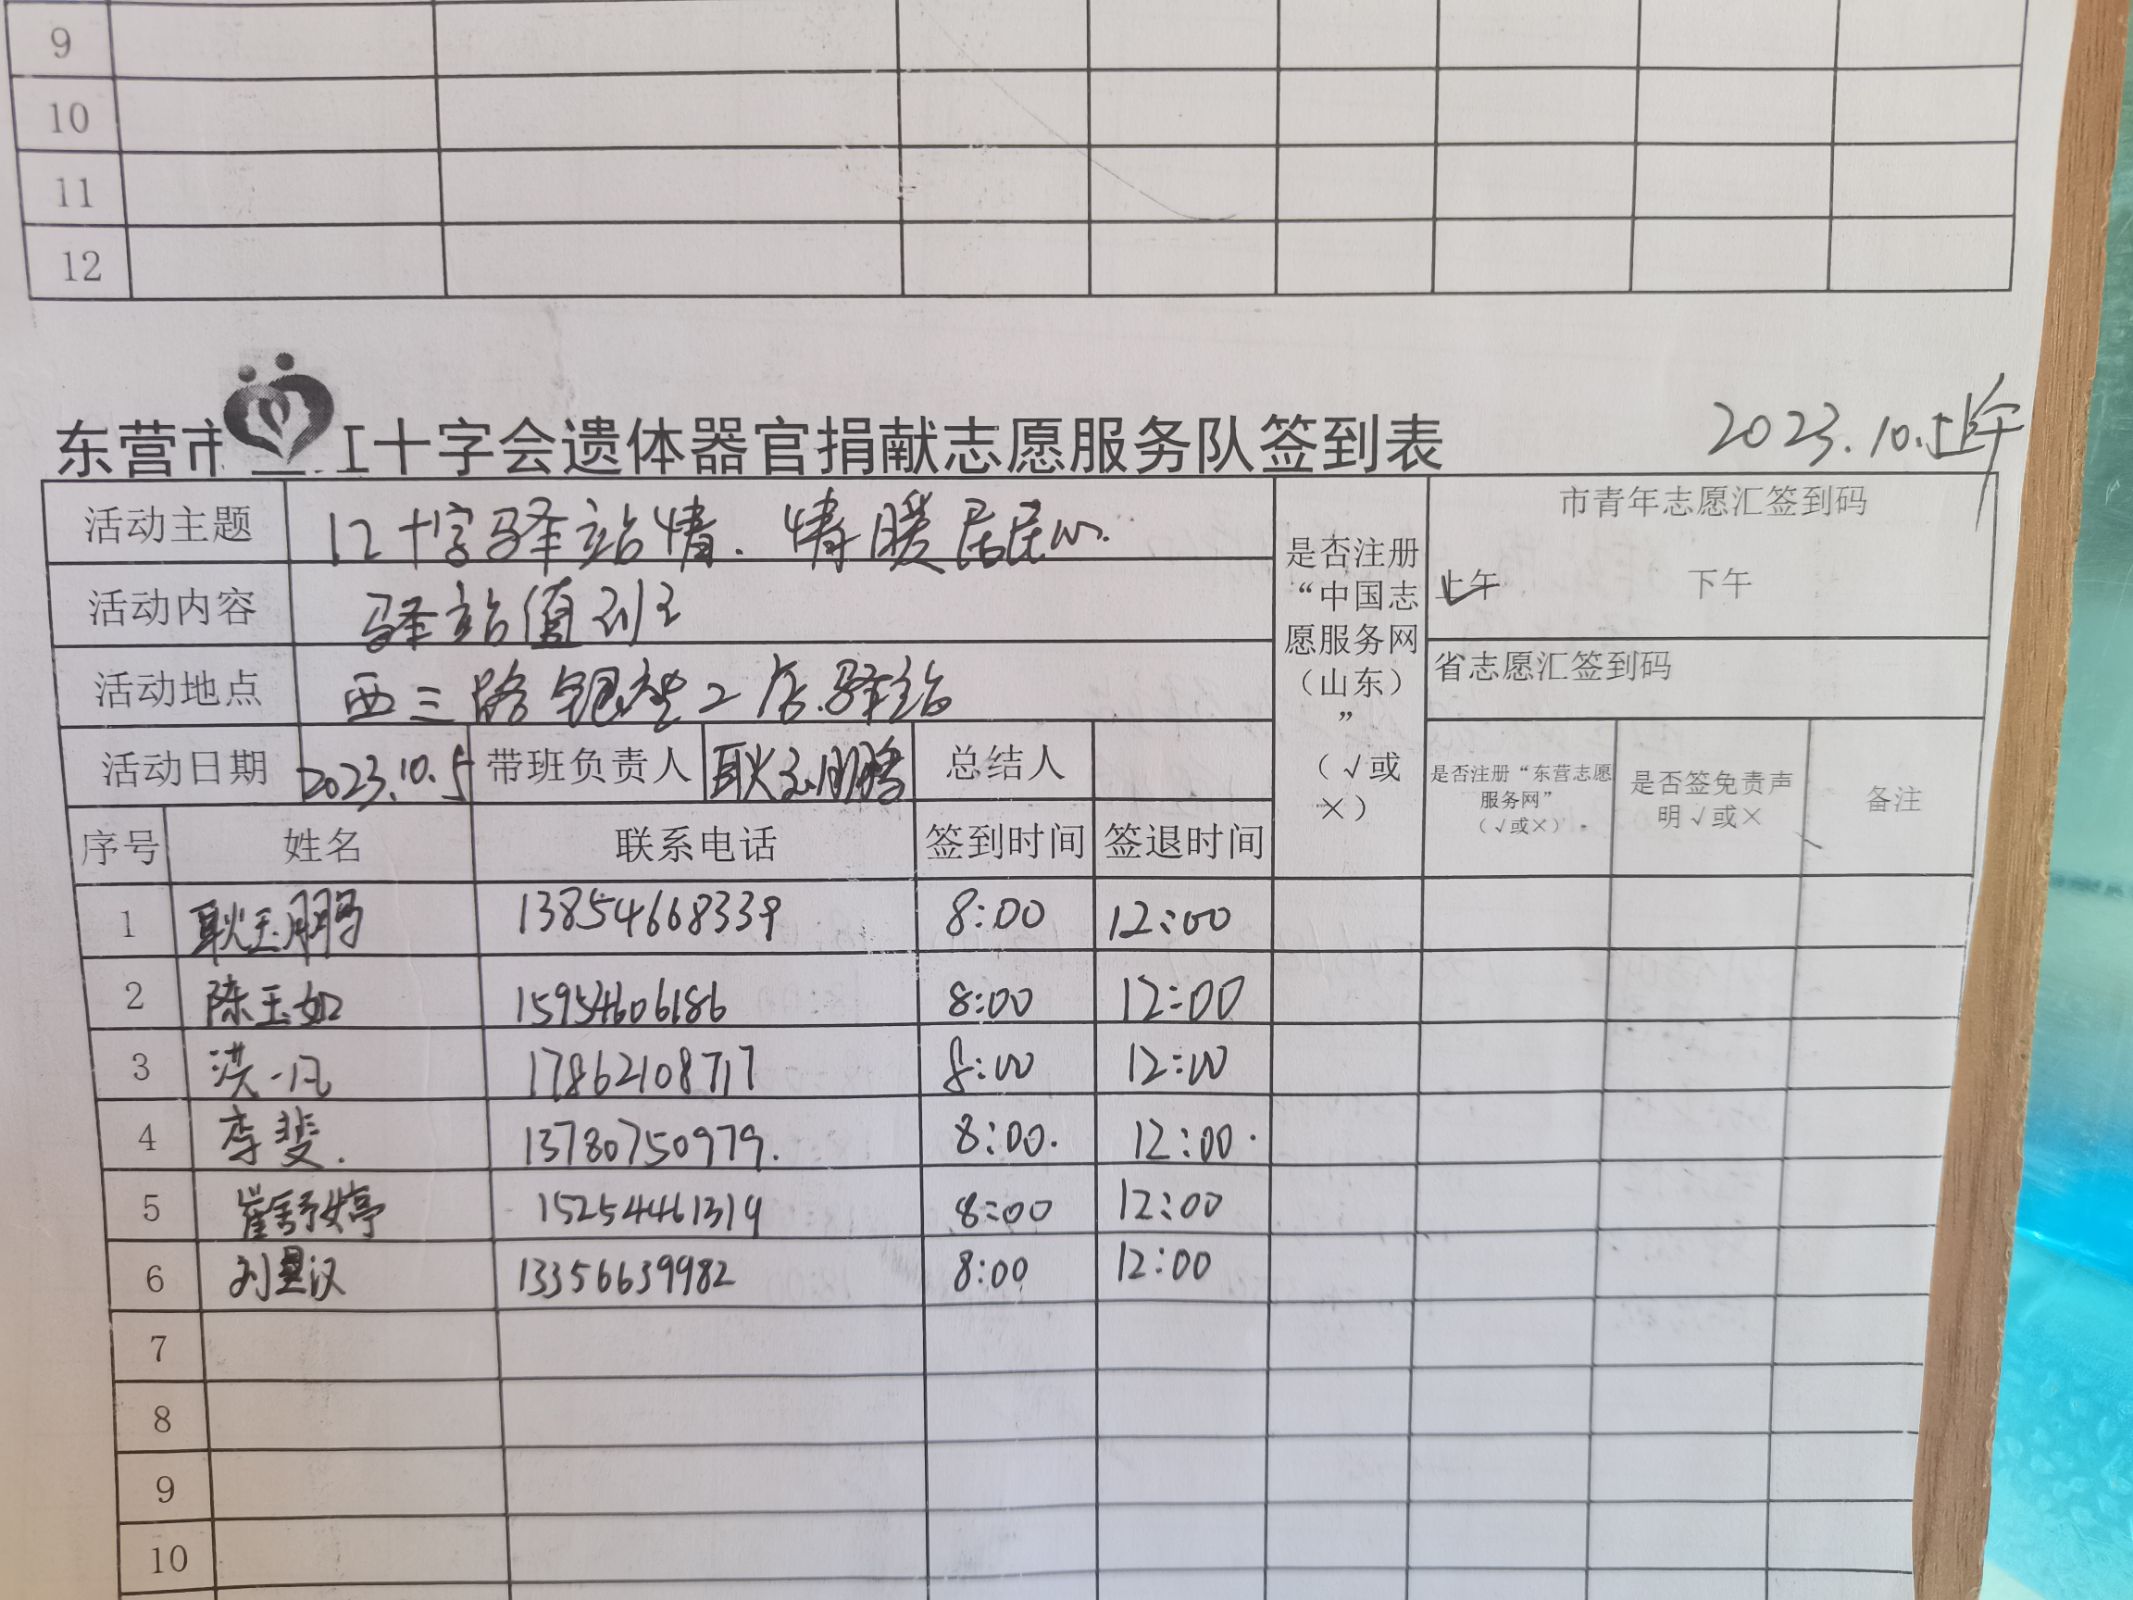 9
10
11
12
东营市红十字会遗体器官捐献志愿服务队签到表
2023.10.5上午
活动主题 红十字驿站情.情暖居民心.
是否注册“中国志愿服务网（山东）”（√或×）
市青年志愿汇签到码
上午 下午
活动内容 驿站值班
省志愿汇签到码
活动地点 西三路银座2店驿站
活动日期 2023.10.5 带班负责人 耿玉鹏 总结人
是否注册“东营志愿服务网”（√或×）. 是否签免责声明√或× 备注
序号 姓名 联系电话 签到时间 签退时间
1 耿玉鹏 13854668339 8:00 12:00
2 陈玉如 15954606186 8:00 12:00
3 洪一凡 17862108717 8:00 12:00
4 李斐. 13780750979. 8:00. 12:00.
5 崔舒婷 15254461319 8:00 12:00
6 刘昱汉 13356639982 8:00 12:00
7
8
9
10